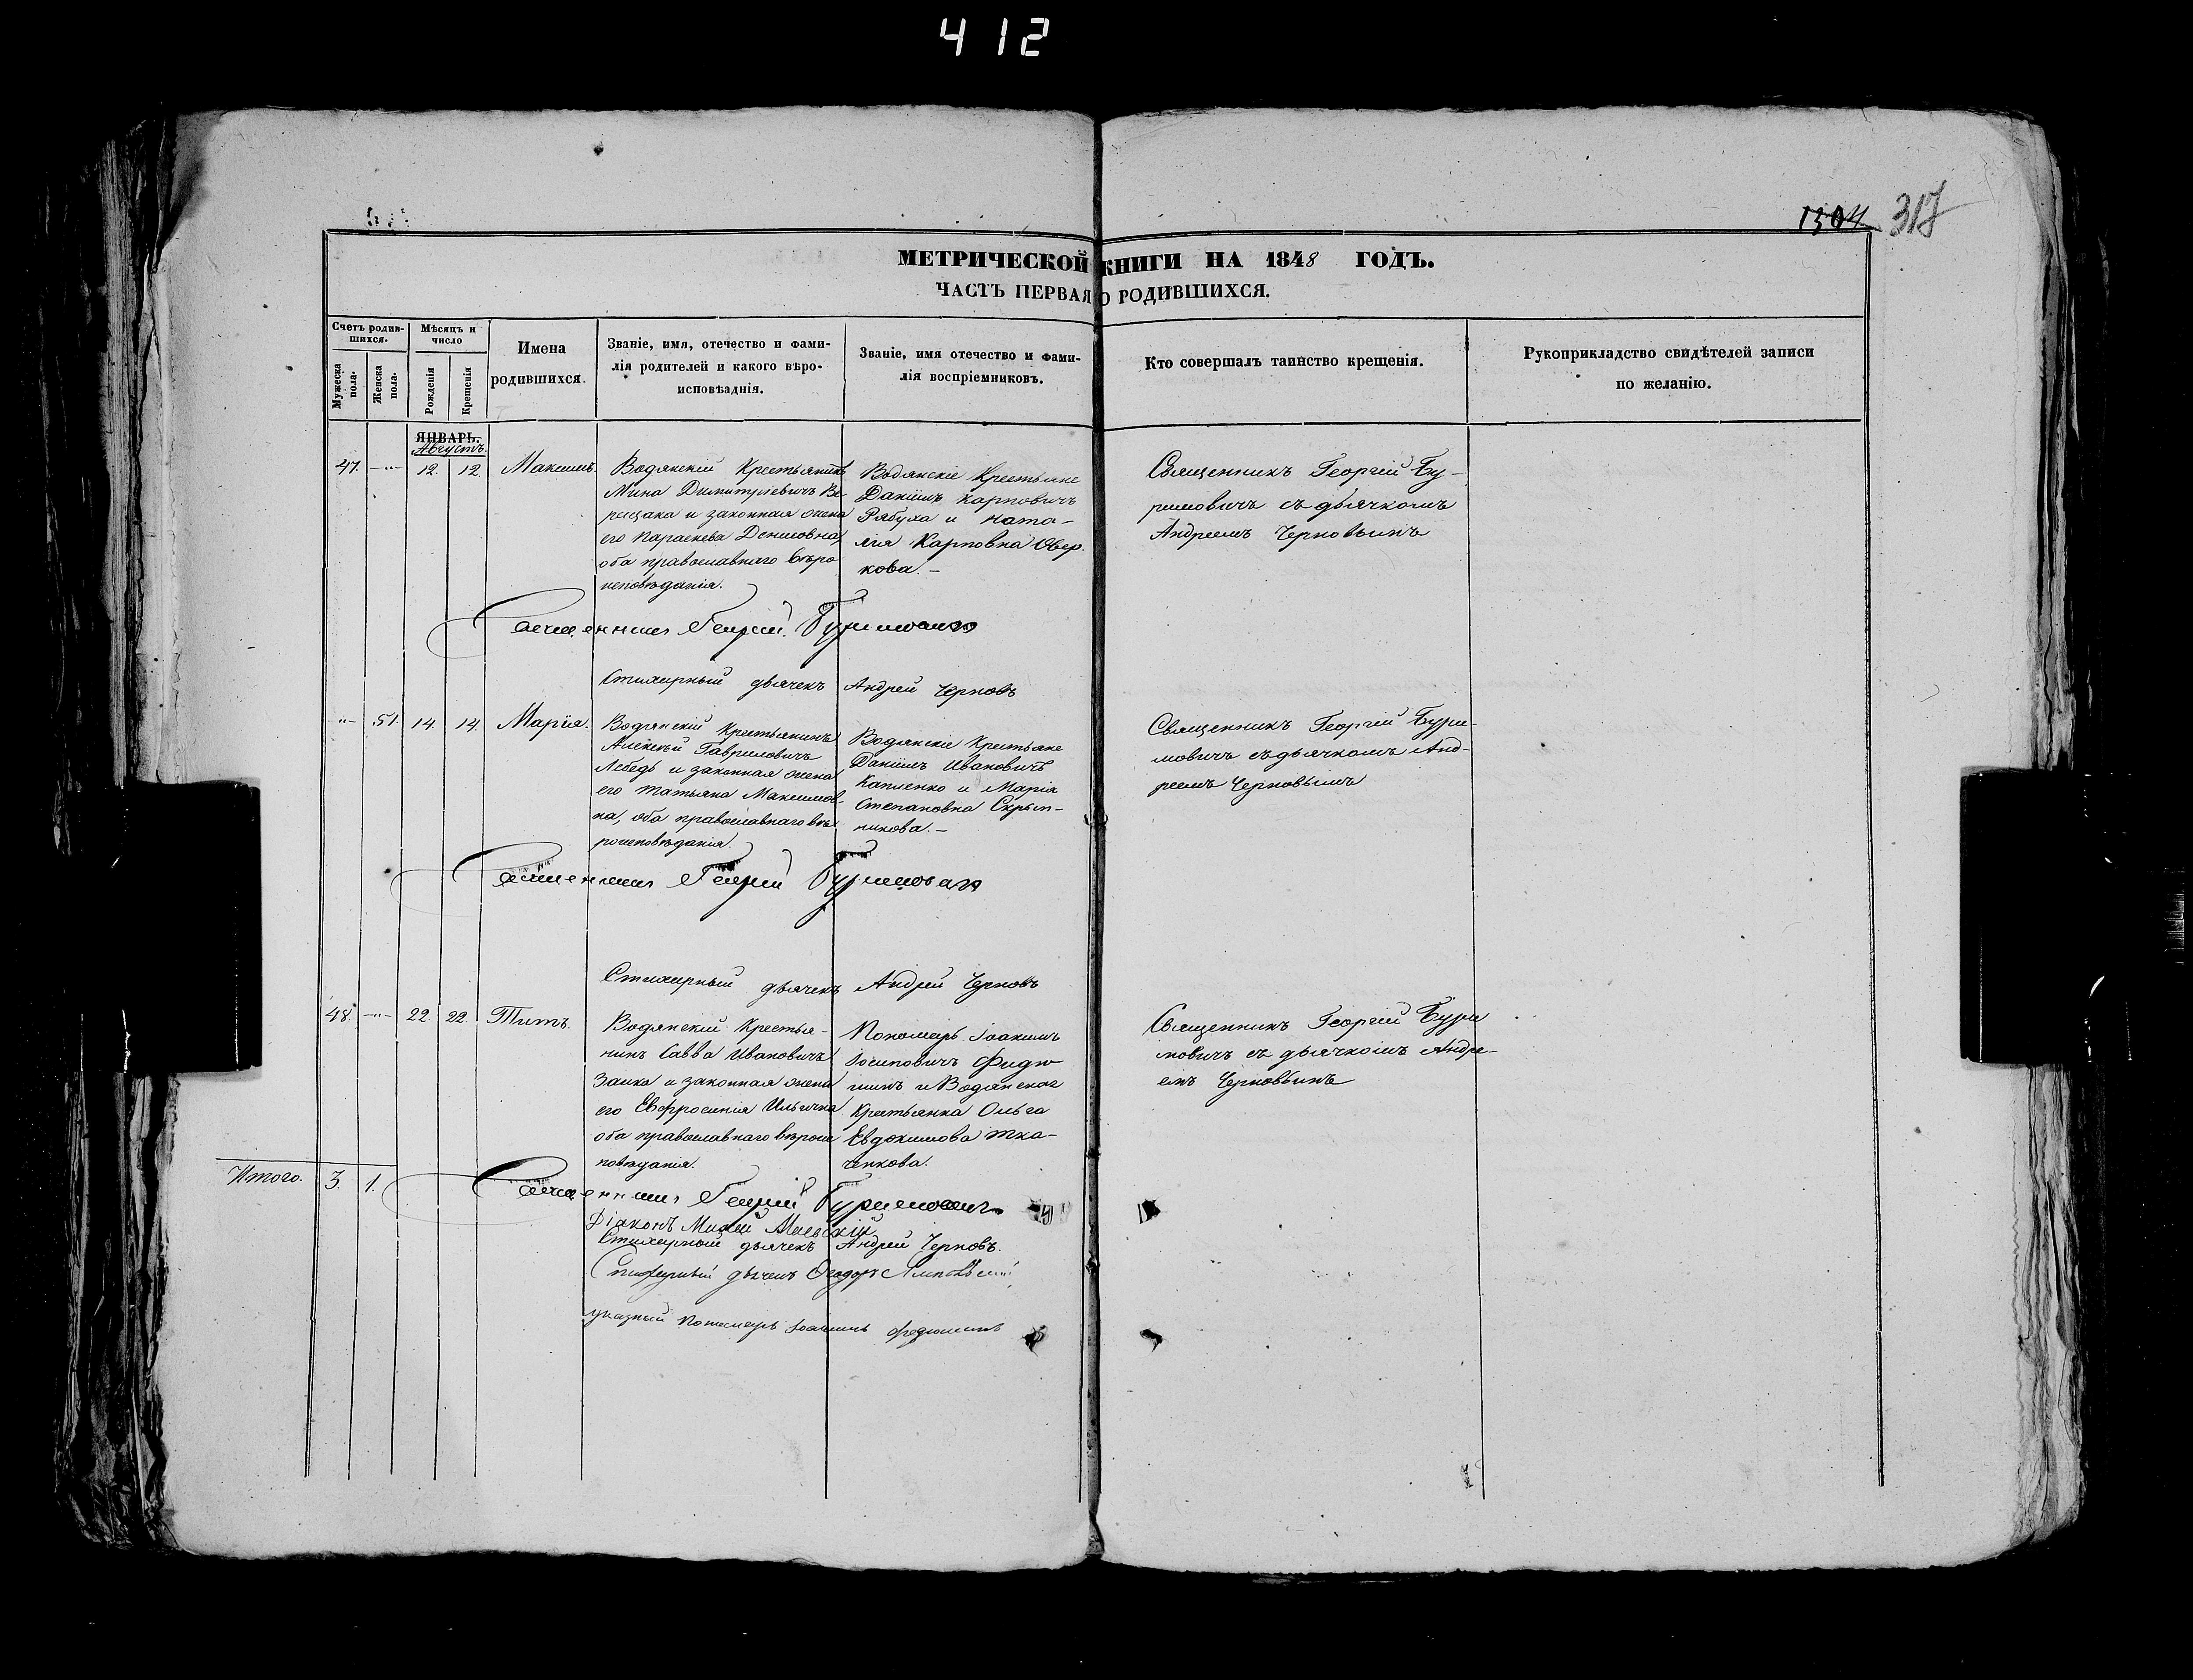 412
1304 317
МЕТРИЧЕСКОЙ КНИГИ НА 1848 ГОДЪ.
ЧАСТЬ ПЕРВАЯ О РОДИВШИХСЯ.
Счетъ родив-
шихся.
Мужеска пола.
Женска пола.
Мѣсяцъ и
число
Рожденія
Крещенія
Имена
родившихся.
Званіе, имя, отечество и фами-
лія родителей и какого вѣро-
исповѣаднія.
Званіе, имя отечество и фами-
лія воспріемниковъ.
Кто совершалъ таинство крещенія.
Рукоприкладство свидѣтелей записи
по желанію.
ЯНВАРЬ.
Августъ.
47. -"- 12. 12. Максимъ.
Водянскій Крестьянинъ
Мина Димитріевичъ Ве
рещака и законная жена
его Параскева Денисовна,
оба православнаго вѣро
исповѣданія.
Водянскіе Крестьяне
Даніилъ Карповичъ
Рябуха и Ната-
лія Карповна Овер
кова.-
Священникъ Георгій Бу-
римовичъ съ дьячкомъ
Андреемъ Черновымъ
Священникъ Георгій Буримовичъ
Стихарный дьячекъ Андрей Черновъ
-"- 51. 14. 14. Марія.
Водянскій Крестьянинъ
Алексѣй Гавриловичъ
Лебедь и законная жена
его Татьяна Максимов-
на, оба православнаго вѣ
роисповѣданія.
Водянскіе Крестьяне
Даніилъ Ивановичъ
Капленко и Марія
Степановна Скрып-
никова.-
Священникъ Георгій Бури-
мовичъ съ дьячкомъ Анд-
реемъ Черновымъ
Священникъ Георгій Буримовичъ
Стихарный дьячекъ Андрей Черновъ
48. -"- 22. 22. Титъ.
Водянскій Крестья-
нинъ Савва Ивановичъ
Заика и законная жена
его Евфросинія Ильична
оба православнаго вѣроис
повѣданія.
Пономарь Іоакимъ
Іосиповичъ Фидю
шинъ и Водянская
Крестьянка Ольга
Евдокимова Тка-
ченкова.
Священникъ Георгій Бури
мовичъ съ дьячкомъ Андре-
емъ Черновымъ
Итого. 3. 1.
Священникъ Георгій Буримовичъ
Діаконъ
Стихарный дьячекъ Андрей Черновъ.
Стихарный дьячекъ Ѳеодоръ
указный Пономарь Іоакимъ Федюшинъ